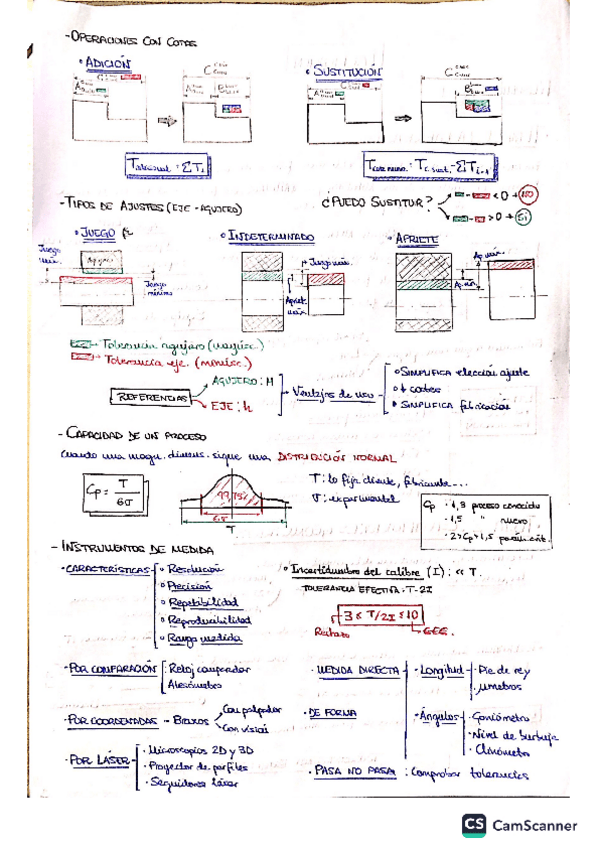 -OPERACIONES CON COTAS
• ADICIÓN
• SUSTITUCIÓN
¿PUEDO SUSTITUIR?
< 0 → NO
> 0 → SI
-TIPOS DE AJUSTES (EJE-AGUJERO)
• JUEGO
• INDETERMINADO
• APRIETE
Juego máx.
Agujero
Juego mínimo
Juego máx.
Apriet. máx.
Ap. máx.
Ap. mín.
→ Tolerancia agujero (mayúsc.)
→ Tolerancia eje. (minúsc.)
REFERENCIAS
AGUJERO: H
EJE: h
Ventajas de uso
• SIMPLIFICA elección ajuste
• ↓ costes
• SIMPLIFICA fabricación
- CAPACIDAD DE UN PROCESO
Cuando una magn. dimens. sigue una DISTRIBUCIÓN NORMAL
Cp = T / 6σ
6σ
T
T: lo fija diseño, fabricante...
σ: experimental
Cp • 1,3 proceso conocido
• 1,5 " nuevo
- INSTRUMENTOS DE MEDIDA
• CARACTERÍSTICAS
• Resolución
• Precisión
• Repetibilidad
• Reproducibilidad
• Rango medida
• Incertidumbre del calibre (I): << T.
TOLERANCIA EFECTIVA: T-2I
3 ≤ T/2I ≤ 10
Rechazo
• POR COMPARACIÓN
Reloj comparador
Alesómetro
• POR COORDENADAS - Brazos
Con palpador
Con visión
• POR LÁSER
• Microscopios 2D y 3D
• Proyector de perfiles
• Seguidores láser
• MEDIDA DIRECTA
• Longitud
• Pie de rey
• DE FORMA
• Ángulos
• Goniómetro
• Nivel de burbuja
• Clinómetro
• PASA NO PASA: Comprobar tolerancias
CS CamScanner